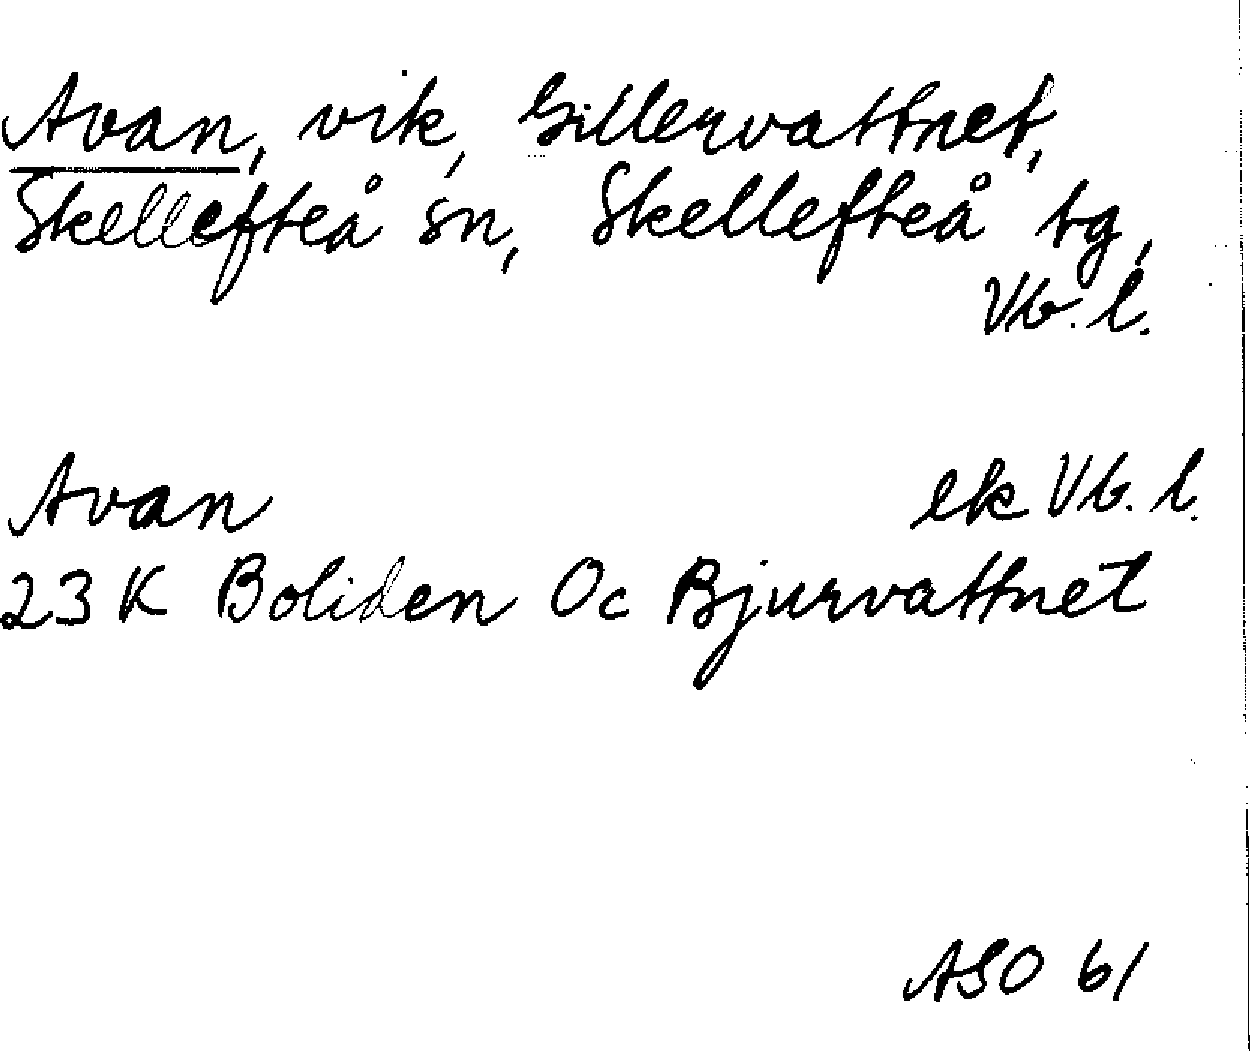 Avan, vik, Gillervattnet,
Skellefteå sn, Skellefteå tg,
Vb. l.
Avan ek Vb. l.
23 K Boliden Oc Bjurvattnet
ASO 61